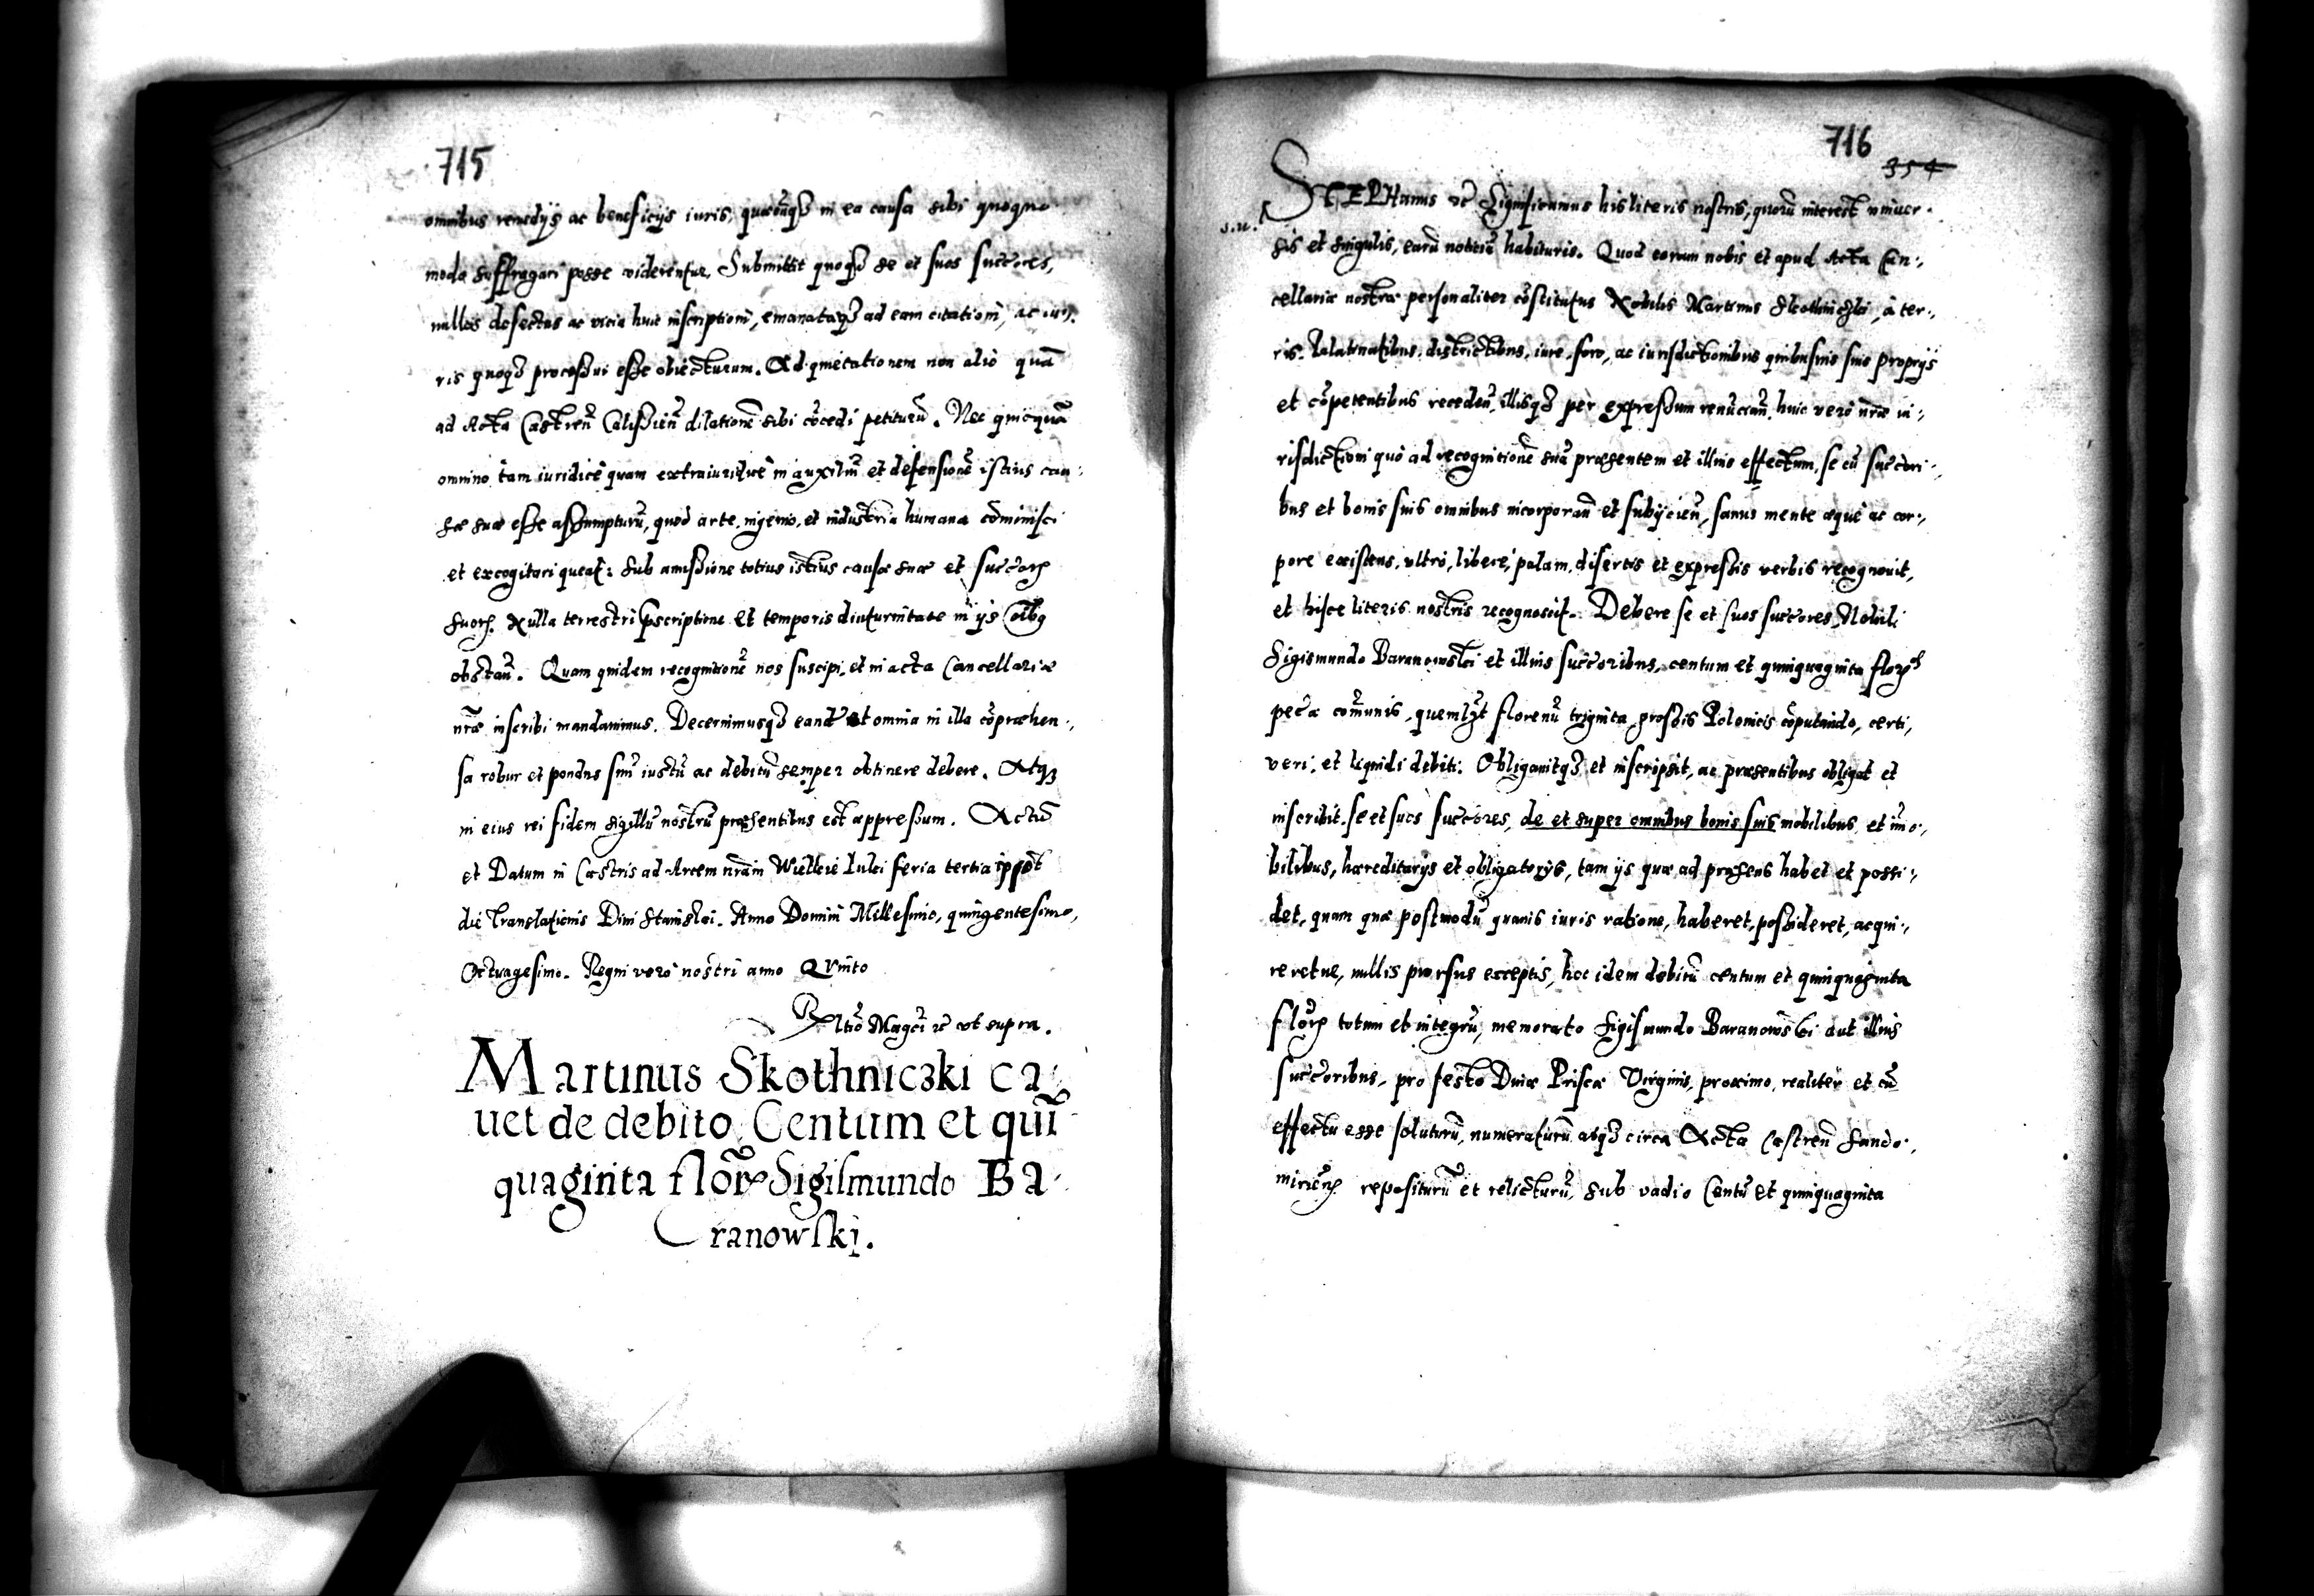 715
omnibus remedijs ac beneficijs iuris, quæcũqȝ in ea causa sibi quoquo
modo suffragari posse viderentur. Submittit quoqȝ se et suos succ̃ores,
nullos defectus ac vicia huic inscriptioni, emanatæqȝ ad eam citationi, ac iu:
ris quoqȝ processui esse obiecturum. Ad quietationem non alio quã
ad Acta Castreñ Calissieñ dilationẽ sibi cõcedi petiturũ. Nec quicquã
omnino tam iuridicè quam extraiuridicè in auxiliũ et defensionẽ istius cau:
sæ suæ esse assumpturũ, quod arte, ingenio, et industria humana cõminisci
et excogitari queat: sub amissione totius istius causæ suæ et succ̃orꝝ
suorꝝ. Nulla terrestri p̱scriptione et temporis diuturnitate in ijs
obstañ. Quam quidem recognitionẽ nos suscipi, et in acta Cancellariæ
nr̃æ inscribi mandauimus. Decernimusqȝ eandẽ et omnia in illa cõpræhen:,
sa robur et pondus suũ iustũ ac debitũ semper obtinere debere. Atqȝ
in eius rei fidem sigillũ nostrũ præsentibus est appressum. Actũ
et Datum in Castris ad Arcem nr̃am Wielkie Luki feria tertia ipsa
die Translationis Diui Stanislai. Anno Domini Millesimo, quingentesimo,
Octuagesimo. Regni verò nostri anno Qvinto
Rltio Magci ꝛc vt supra.
Martinus Skothniczki ca:
uet de debito Centum et qui̅
quaginta flor̃ꝝ Sigismundo Ba:
ranowski.
716
354
s.n.
STEPHanus ꝛc Significamus his literis nostris, quorũ interest vniuer:
sis et singulis, earũ notitiã habituris. Quod coram nobis et apud Acta Can:,
cellariæ nostræ personaliter cõstitutus Nobilis Martinus Skothniczki, à ter:,
ris. Palatinatibus, districtibus, iure, foro, ac iurisdictionibus quibusuis suis proprijs
et cõpetentibus recedeñ, illisqȝ per expressum renũciañ, huic verò nr̃æ iu:,
risdictioni quò ad recognitionẽ suã præsentem et illius effectum, se cũ succ̃ori:,
bus et bonis suis omnibus incorporañ et subijcieñ, sanus mente æquè ac cor:,
pore existens, vltrò, liberè, palam, disertis et expressis verbis recognouit,
et hisce literis nostris recognoscit. Debere se et suos succ̃ores, Nobili
Sigismundo Baranowski et illius succ̃oribus, centum et quinquaginta florꝝ
pec̃æ com̃unis, quemlȝt florenũ triginta grossis Polonicis cõputando, certi,
veri, et liquidi debiti. Obligauitqȝ et inscripsit, ac præsentibus obligat et
inscribit. se et suos succ̃ores, de et super omnibus bonis suis mobilibus et im̃o:,
bilibus, hæreditarijs et obligatorijs, tam ijs quæ ad præsens habet et possi:,
det, quam quæ postmodũ quauis iuris ratione, haberet, possideret, acqui:,
reretue, nullis prorsus exceptis, hoc idem debitũ centum et quinquaginta
flor̃ꝝ totum et integrũ, memorato Sigismundo Baranowski aut illius
succ̃oribus, pro festo Diuæ Priscæ Virginis, proximo, realiter et cũ
effectu esse soluturũ, numeraturũ, atqȝ circa Acta Castreñ Sando:,
mirieñ repositurũ et relicturũ, sub vadio Centũ et quinquaginta